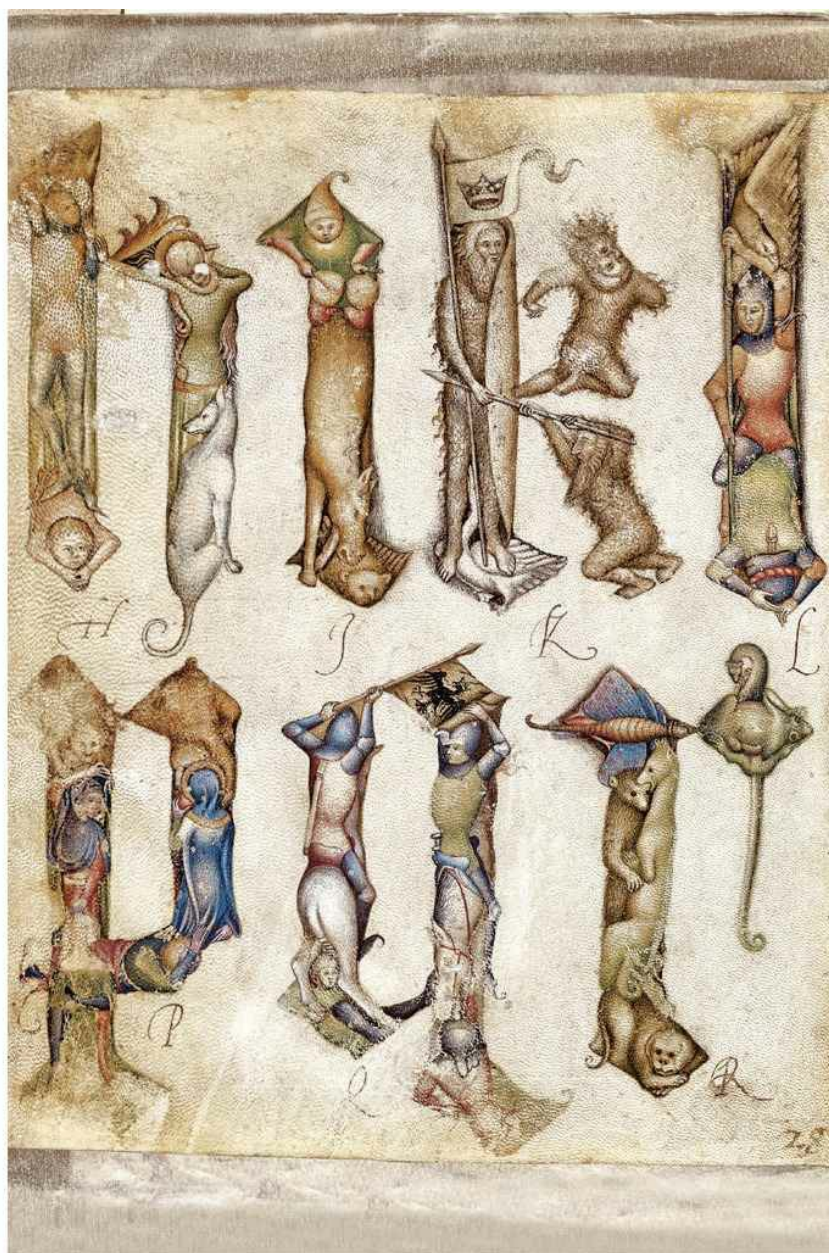 H J K L
P Q R
28